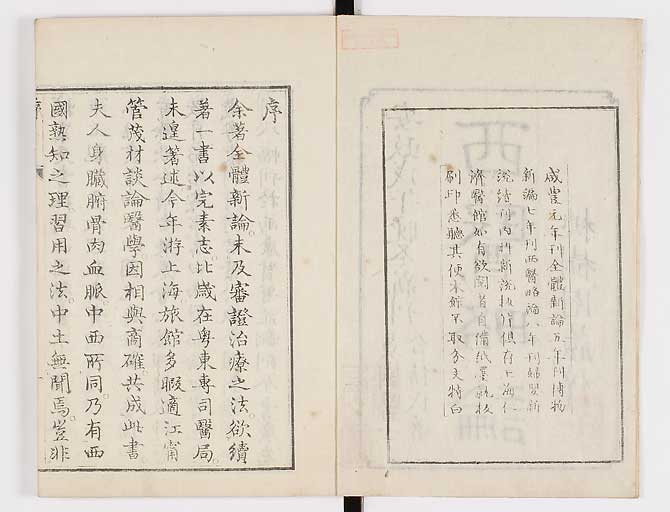 咸豐元年刊全體新論五年刊博物
新編七年刊西醫略論八年刊婦嬰新
說續刊內科新說板片俱存上海仁
濟醫館如有欲閱者自備紙墨就板
刷印悉聽其便本館不取分文特白
序
余著全體新論。未及審證治療之法。欲續
著一書以完素志。比歲在粵東專司醫局。
未遑著述今年游上海旅館多暇適江甯
管茂材談論醫學因相與商確共成此書
夫人身臟腑骨肉血脈中西所同。乃有西
國熟知之理習用之法。中土無聞焉。豈非
序